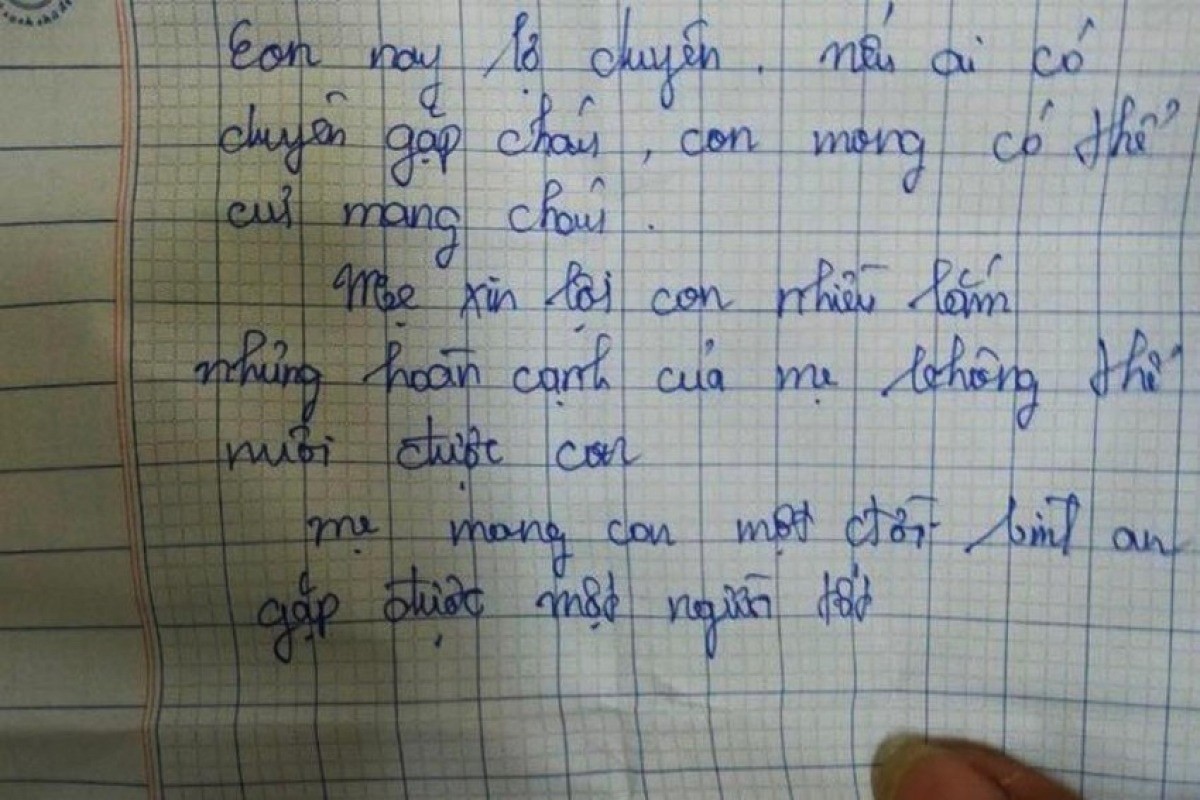 Con nay lỡ chuyện. nếu ai có
duyên gặp cháu, con mong có thể
cưu mang cháu.
Mẹ xin lỗi con nhiều lắm
nhưng hoàn cạnh của mẹ không thể
nuôi được con
mẹ mong con một đời bình an
gặp được một người tốt